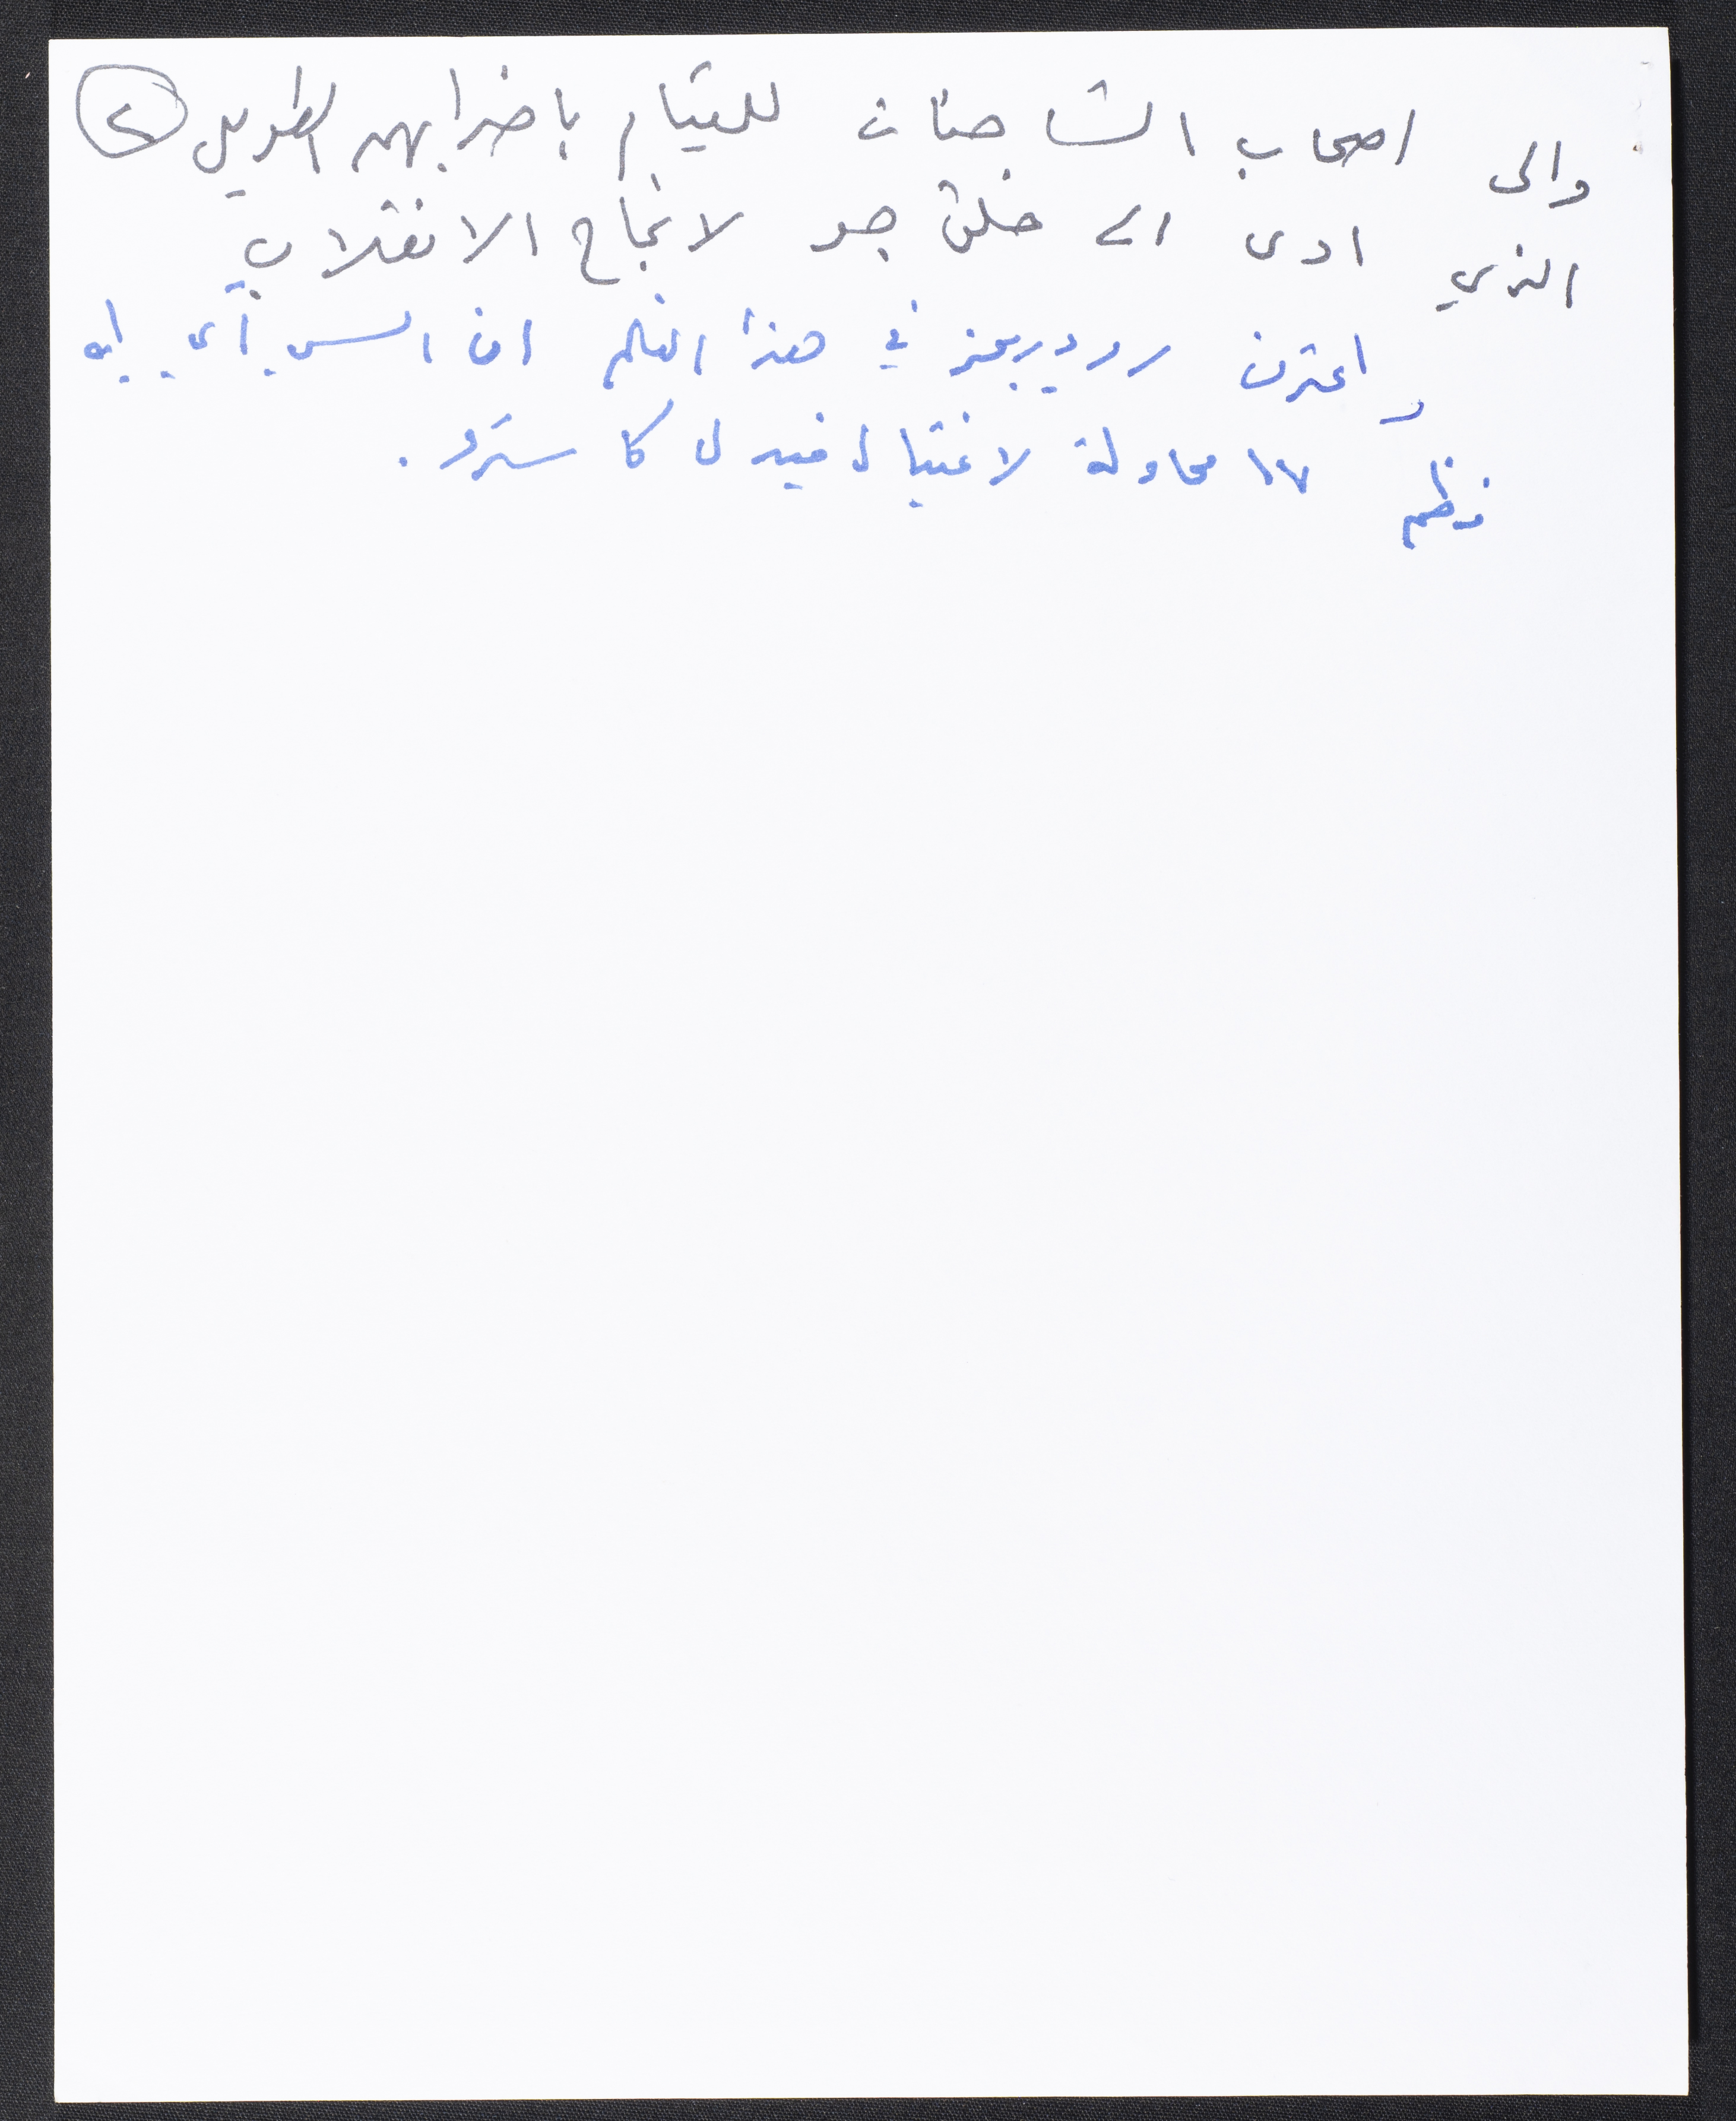 والى اصحاب الشاحنات للقيام باضرابهم الطويل ٢
الذي ادى الى خلق جو لانجاح الانقلاب
واعترف رودريجز في هذا الفلم ان السي آي ايه
نظم ١٧ محاولة لاغتيال فيدل كاسترو.